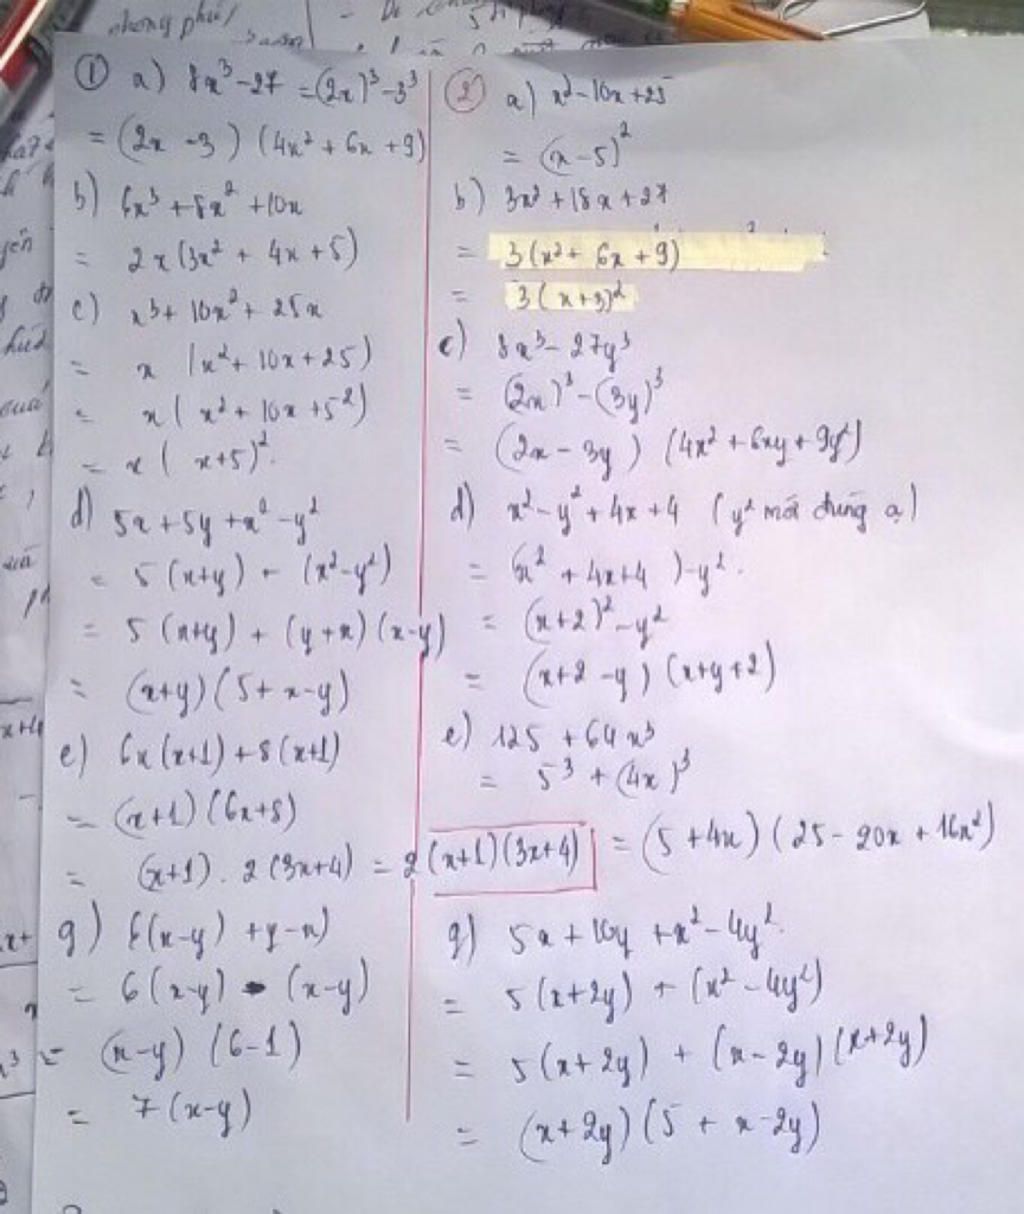 ① a) 8x³ - 27 = (2x)³ - 3³
= (2x - 3) (4x² + 6x + 9)
b) 6x³ + 8x² + 10x
= 2x (3x² + 4x + 5)
c) x³ + 10x² + 25x
= x (x² + 10x + 25)
= x ( x² + 10x + 5²)
= x ( x+5)².
d) 5x + 5y + x² - y²
= 5 (x+y) + (x²-y²)
= 5 (x+y) + (y+x) (x-y)
= (x+y) (5 + x-y)
e) 6x (x+1) + 8 (x+1)
= (x+1) (6x+8)
= (x+1) . 2 (3x+4) = 2 (x+1) (3x+4)
g) 6(x-y) + y-x)
= 6 (x-y) - (x-y)
= (x-y) (6-1)
= 7 (x-y)
② a) x² - 10x + 25
= (x-5)²
b) 3x² + 18x + 27
= 3 (x² + 6x + 9)
= 3 ( x+3)²
c) 8x³ - 27y³
= (2x)³ - (3y)³
= (2x - 3y ) (4x² + 6xy + 9y²)
d) x² - y² + 4x + 4 ( y² mới đúng ạ)
= (x² + 4x+4 ) - y² .
= (x+2)² - y²
= (x+2 - y) (x+y+2)
e) 125 + 64x³
= 5³ + (4x)³
= (5 + 4x) (25 - 20x + 16x²)
g) 5x + 10y + x² - 4y².
= 5 (x+2y) + (x² - 4y²)
= 5 (x + 2y) + (x - 2y) (x+2y)
= (x + 2y) (5 + x - 2y)